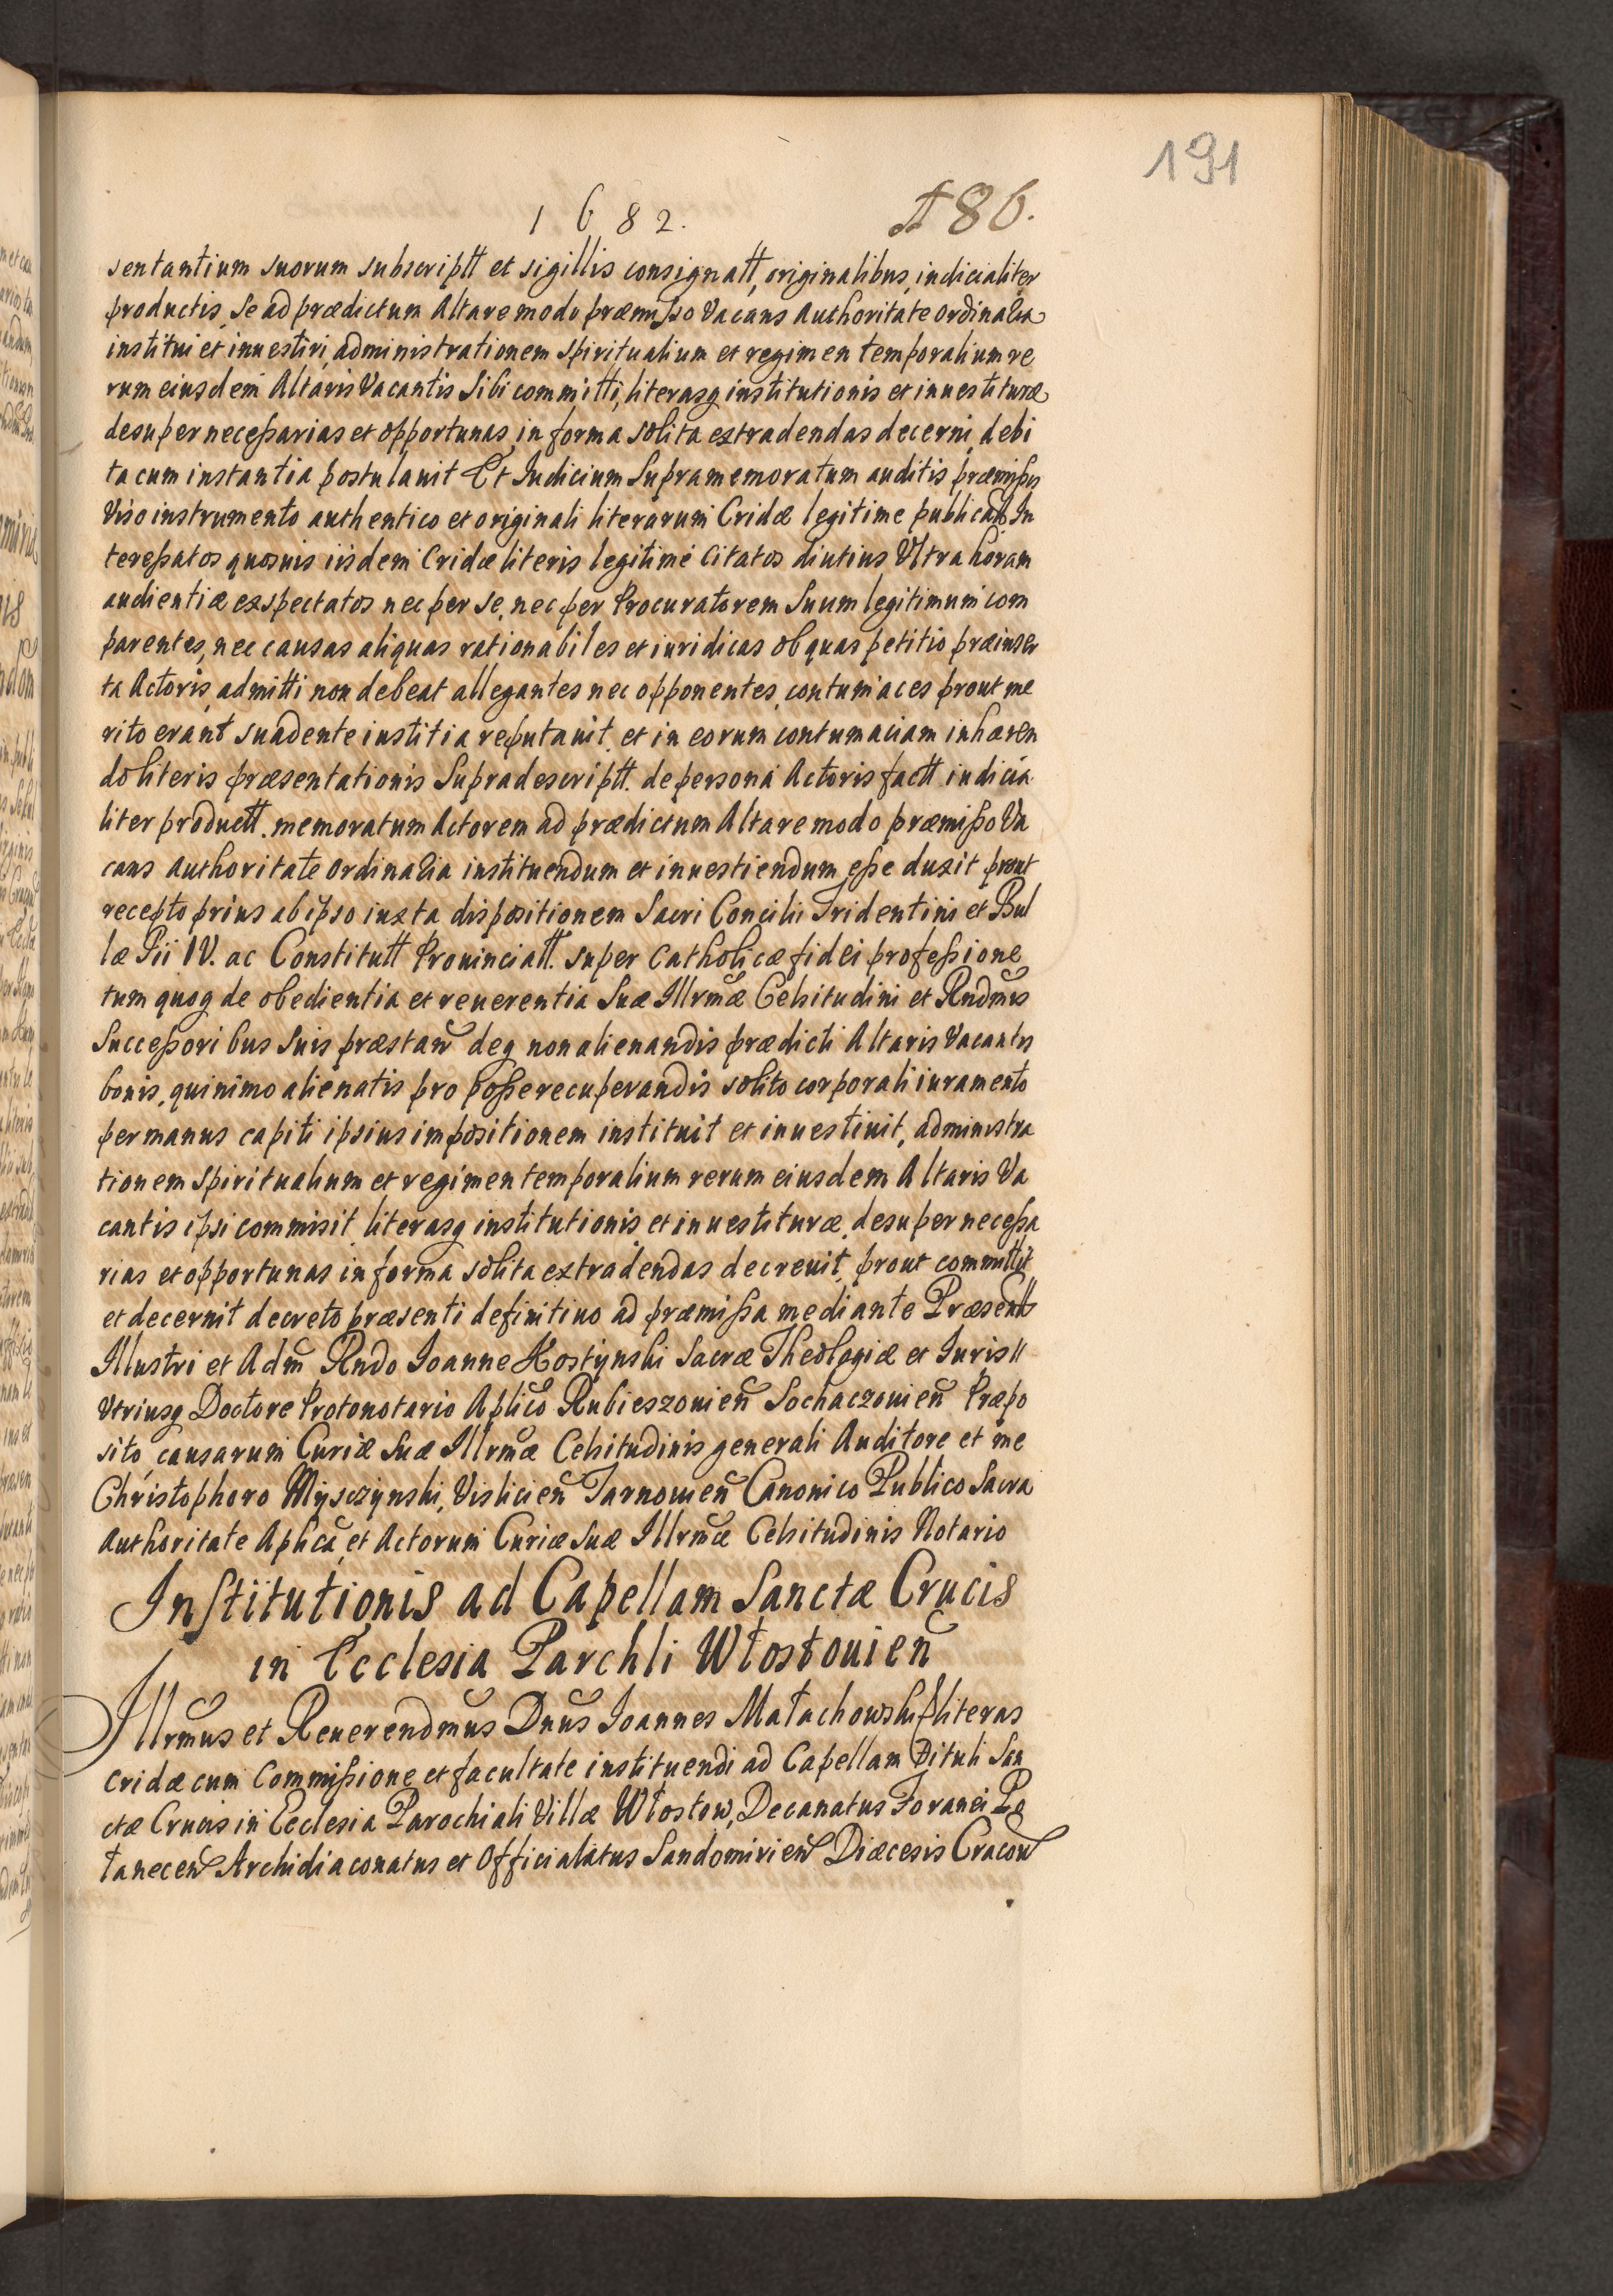 191
1682.
186.
sentantium suorum subscriptt et sigillis consignatt, originalibus, iudicialiter
productis, Se ad prædictum Altare modo præmisso Vacans Authoritate ordinaria
institui et inuestiri, administrationem spiritualium et regimen temporalium re
rum eiusdem Altaris Vacantis Sibi committi, literasq institutionis et inuestituræ
desuper necessarias et opportunas in forma solita extradendas decerni debi
ta cum instantia postulauit Et Iudicium Supramemoratum auditis præmissis
Viso instrumento authentico et originali literarum Cridæ legitime publicatt In
teressatos quosuis iisdem Cridæ literis legitimè citatos diutius Vltra horam
audientiæ exspectatos nec per se, nec per Procuratorem Suum legitimum com
parentes, nec causas aliquas rationabiles et iuridicas ob quas petitio præinser
ta Actoris, admitti non debeat allegantes nec opponentes, contumaces prout me
rito erant suadente iustitia reputauit, et in eorum contumaciam inhæren
do literis præsentationis Supradescriptt. de persona Actoris factt iudicia
liter productt. memoratum Actorem ad prædictum Altare modo præmisso Va
cans Authoritate ordinaria instituendum et inuestiendum esse duxit prout
recepto prius ab ipso iuxta dispositionem Sacri Concilii Tridentini et Bul
læ Pii IV. ac Constitutt Prouinciatt. super Catholicæ fidei professione
tum quoq de obedientia et reuerentia Suæ Illrmæ Celsitudini et Rndmis
Successoribus Suis præstan deq non alienandis prædicti Altaris Vacantis
bonis, quinimo alienatis pro posse recuperandis solito corporali iuramento
per manus capiti ipsius impositionem instituit et inuestiuit, administra
tionem spiritualium et regimen temporalium rerum eiusdem Altaris Va
cantis ipsi commisit literasq institutionis et inuestituræ, desuper necessa
rias et opportunas in forma solita extradendas decreuit, prout committit
et decernit decreto præsenti definitiuo ad præmissa mediante Præsentt
Illustri et Adm Rndo Ioanne Kostynski Sacræ Theologiæ et Iuris
Vtriusq Doctore Protonotario Aplico Rubieszouien Sochaczouien Præpo
sito, causarum Curiæ Suæ Illrmæ Celsitudinis generali Auditore et me
Christophoro Mysczynski, Vislicien Tarnouien Canonico Publico Sacra
Authoritate Aplica, et Actorum Curiæ Suæ Illrmæ Celsitudinis Notario
Institutionis ad Capellam Sanctæ Crucis
in Ecclesia Parchli Włostouien
Illrmus et Reuerendmus Dnus Ioannes Małachowski literas
cridæ cum Commissione et facultate instituendi ad Capellam Tituli San
ctæ Crucis in Ecclesia Parochiali Villæ Włostow, Decanatus Foranei Po
łanecen Archidiaconatus et Officialatus Sandomirien Diæcesis Cracou